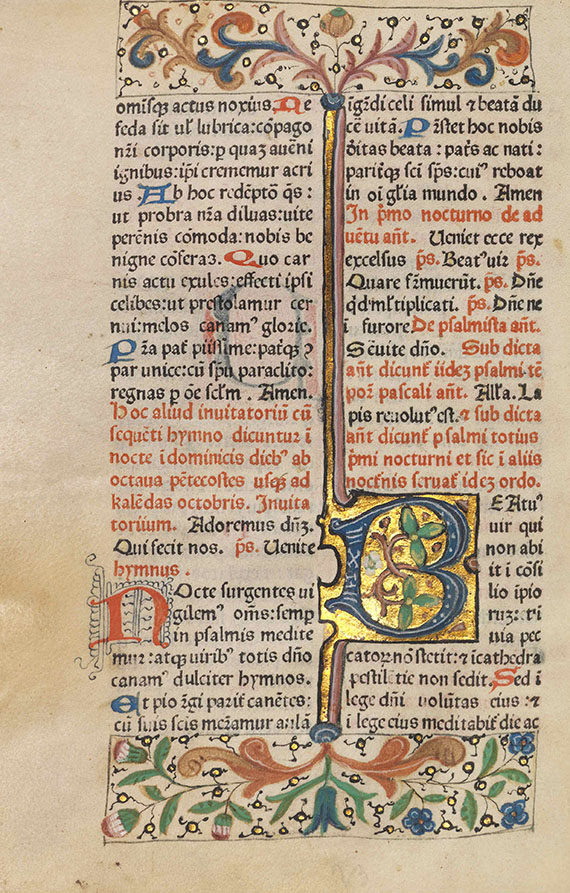 omiſqȝ actus noxius. Ne
feda sit uł lubrica: cōpago
nr̄i corporis: ꝑ quaȝ aueni
ignibus: ip̄i crememur acri
us. Ab hoc redēptō q̄s:
ut probra nr̄a diluas: uite
perēnis cōmoda: nobis be
nigne cōferaȝ. Quo car
nis actu exules: effecti ipsi
celibes: ut prestolamur cer
nui: melos canamꝰ glorie.
Pr̄a pat̄ piiſſime: pat̄qȝ ꝯ
par unice: cū sp̄u paraclito:
regnas ꝑ oē sc̄lm. Amen.
Hoc aliud inuitatoriū cū
sequēti hymno dicuntur i
nocte i dominicis diebꝰ ab
octaua pētecostes usqȝ ad
kalēdas octobris. Inuita
toriium. Adoremus dn̄ȝ.
Qui fecit nos. p̄s. Uenite
hymnus.
NOcte surgentes ui
gilemꝰ om̄s: semꝑ
in psalmis medite
mur: atqȝ uiribꝰ totis dn̄o
canamꝰ dulciter hymnos.
Et pio r̄gi parit̄ canētes:
cū suis scīs meream̄ur aulā
igr̄di celi simul ⁊ beatā du
cē̄ uitā. Pr̄stet hoc nobis
d̄itas beata: pat̄s ac nati:
parit̄qȝ sc̄i sp̄s: cuiꝰ reboat
in oī gl̄ia mundo. Amen
In p̄mo nocturno de ad
uētu an̄t. Ueniet ecce rex
excelsus p̄s. Beatꝰ uir p̄s.
Quare fr̄muerūt. p̄s. Dn̄e
q̄d ml̄tiplicati. p̄s. Dn̄e ne
i furore De psalmista an̄t.
Seuite dn̄o. Sub dicta
an̄t dicunt̄ iideȝ psalmi. tē
por̄ pascali an̄t. Alła. La
pis reuolutꝰ est. ⁊ sub dicta
an̄t dicunt̄ psalmi totius
p̄mi nocturni et sic i aliis
noct̄nis seruat̄ ideȝ ordo.
BEAtuꝰ
uir qui
non abi
it i cōsi
lio ipio
ruȝ: et i
uia pec
catorꝫ nō stetit: ⁊ i cathedra
pestilētie non sedit. Sed i
lege dn̄i uolūtas eius: ⁊
i lege eius meditabit̄ die ac